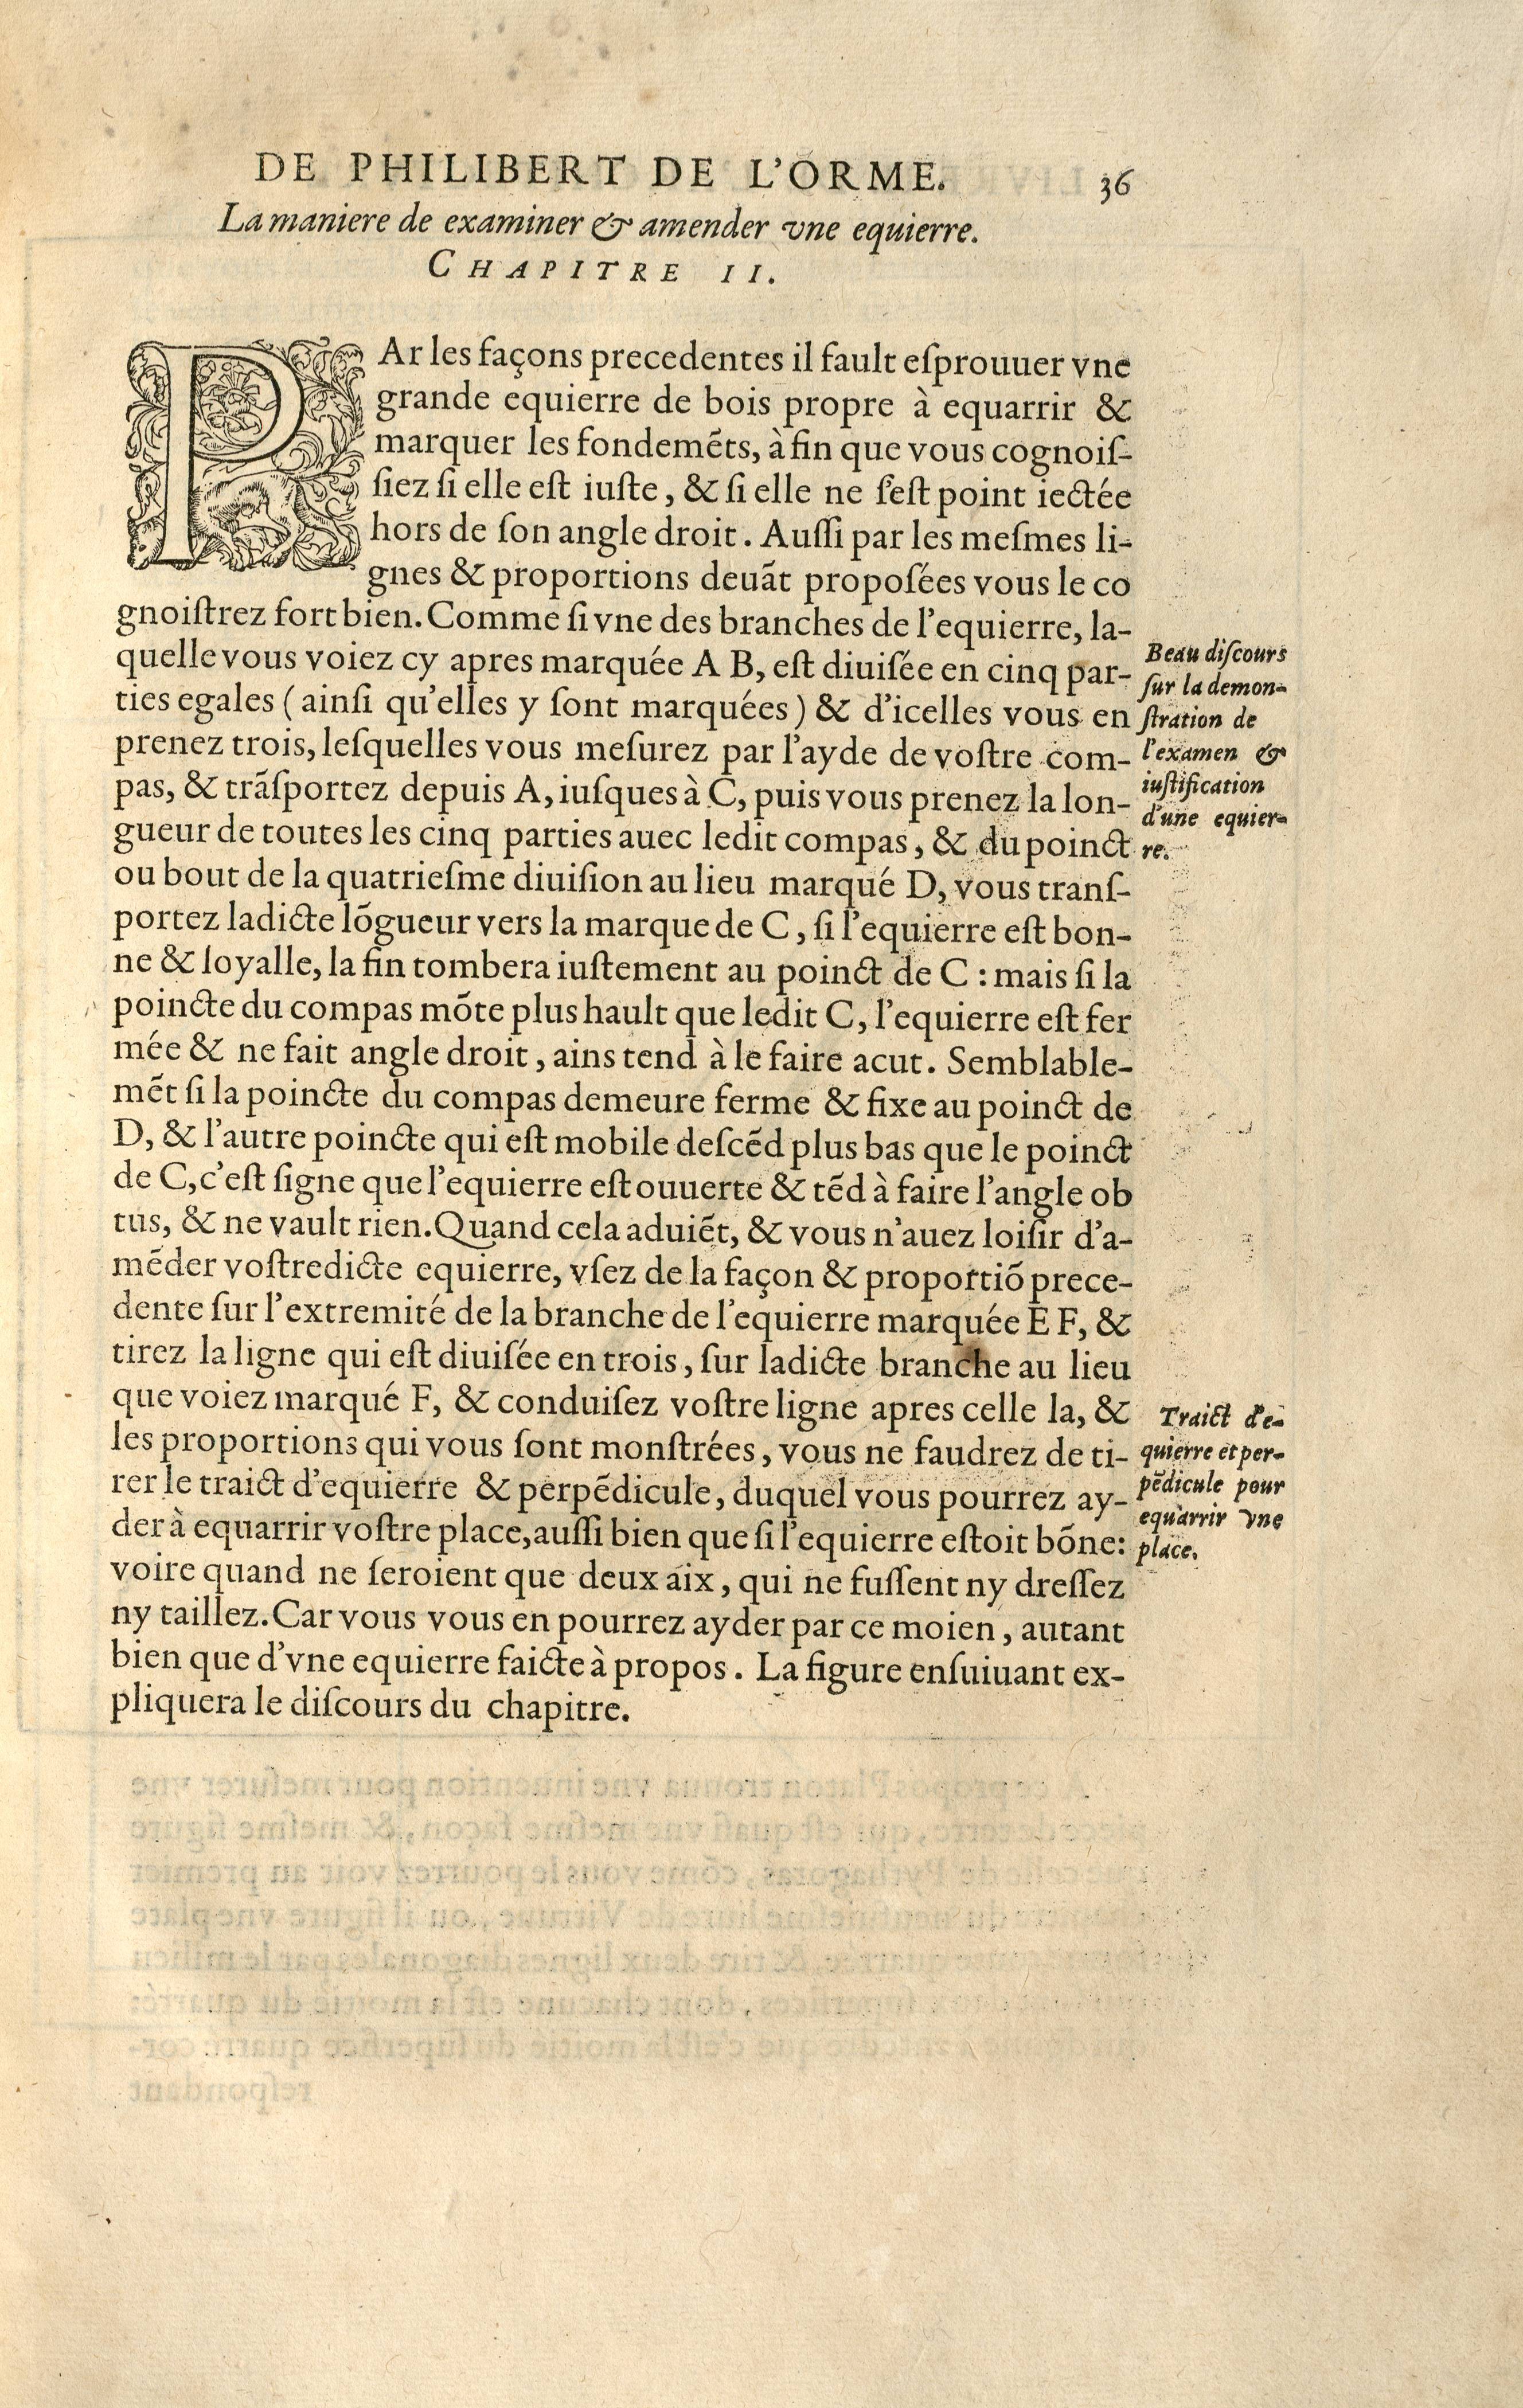 DE PHILIBERT DE L'ORME. 36
La maniere de examiner & amender vne equierre.
CHAPITRE II.
PAr les façons precedentes il fault eſprouuer vne
grande equierre de bois propre à equarrir &
marquer les fondemẽts, à fin que vous cognoiſ-
ſiez ſi elle eſt iuſte, & ſi elle ne s'eſt point iectée
hors de ſon angle droit. Auſſi par les meſmes li-
gnes & proportions deuãt propoſées vous le co
gnoiſtrez fort bien. Comme ſi vne des branches de l'equierre, la-
quelle vous voiez cy apres marquée A B, eſt diuiſée en cinq par-
ties egales (ainſi qu'elles y ſont marquées) & d'icelles vous en
prenez trois, leſquelles vous meſurez par l'ayde de voſtre com-
pas, & trãſportez depuis A, iuſques à C, puis vous prenez la lon-
gueur de toutes les cinq parties auec ledit compas, & du poinct
ou bout de la quatrieſme diuiſion au lieu marqué D, vous tranſ-
portez ladicte lõgueur vers la marque de C, ſi l'equierre eſt bon-
ne & loyalle, la fin tombera iuſtement au poinct de C : mais ſi la
poincte du compas mõte plus hault que ledit C, l'equierre eſt fer
mée & ne fait angle droit, ains tend à le faire acut. Semblable-
mẽt ſi la poincte du compas demeure ferme & fixe au poinct de
D, & l'autre poincte qui eſt mobile deſcẽd plus bas que le poinct
de C, c'eſt ſigne que l'equierre eſt ouuerte & tẽd à faire l'angle ob
tus, & ne vault rien. Quand cela aduiẽt, & vous n'auez loiſir d'a-
mẽder voſtredicte equierre, vſez de la façon & proportiõ prece-
dente ſur l'extremité de la branche de l'equierre marquée E F, &
tirez la ligne qui eſt diuiſée en trois, ſur ladicte branche au lieu
que voiez marqué F, & conduiſez voſtre ligne apres celle la, &
les proportions qui vous ſont monſtrées, vous ne faudrez de ti-
rer le traict d'equierre & perpẽdicule, duquel vous pourrez ay-
der à equarrir voſtre place, auſſi bien que ſi l'equierre eſtoit bõne:
voire quand ne ſeroient que deux aix, qui ne fuſſent ny dreſſez
ny taillez. Car vous vous en pourrez ayder par ce moien, autant
bien que d'vne equierre faicte à propos. La figure enſuiuant ex-
pliquera le diſcours du chapitre.
Beau diſcours
ſur la demon-
ſtration de
l'examen &
iuſtification
d'une equier-
re.
Traict d'e-
quierre et per-
pẽdicule pour
equarrir vne
place.